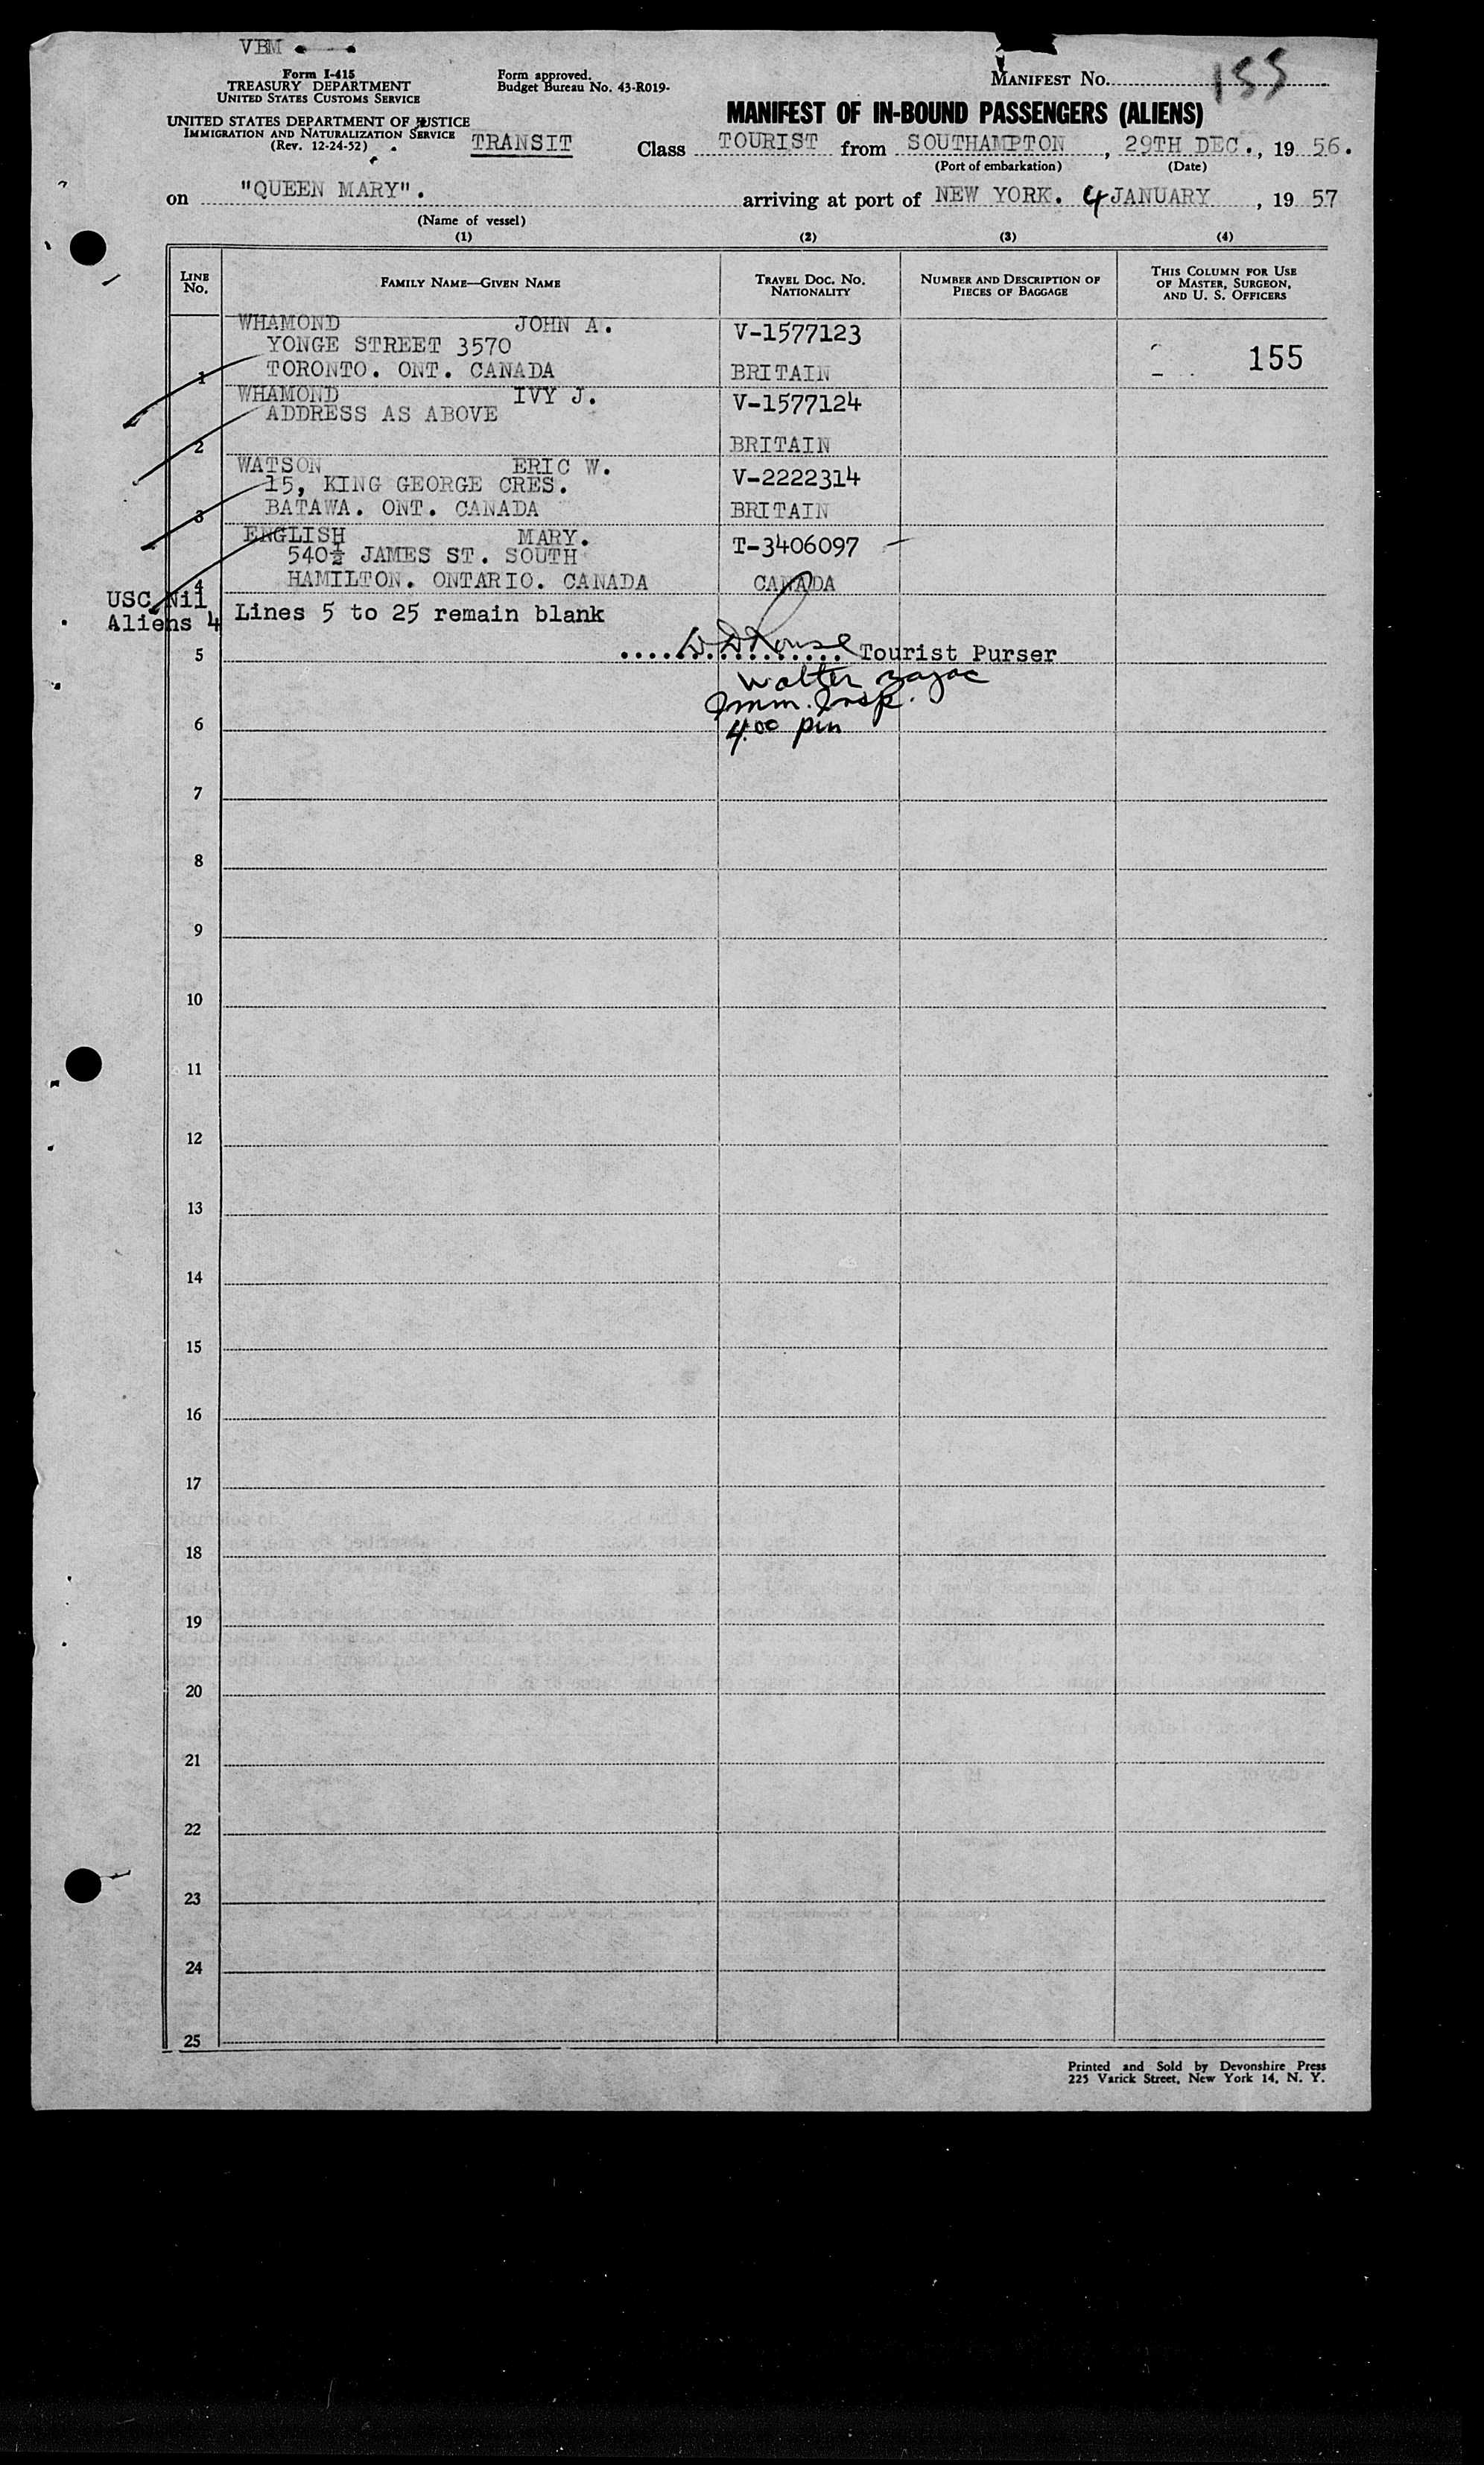 VBM
Form I-415
TREASURY DEPARTMENT
UNITED STATES CUSTOMS SERVICE
Form approved.
Budget Bureau No. 43-R019-
MANIFEST NO. 155
UNITED STATES DEPARTMENT OF JUSTICE
IMMIGRATION AND NATURALIZATION SERVICE
(Rev. 12-24-52)
MANIFEST OF IN-BOUND PASSENGERS (ALIENS)
TRANSIT Class TOURIST from SOUTHAMPTON, 29TH DEC., 19 56.
(Port of embarkation) (Date)
on "QUEEN MARY". arriving at port of NEW YORK. 4 JANUARY, 19 57
(Name of vessel)
(1) (2) (3) (4)
LINE NO. FAMILY NAME—GIVEN NAME TRAVEL DOC. NO. NATIONALITY NUMBER AND DESCRIPTION OF PIECES OF BAGGAGE THIS COLUMN FOR USE OF MASTER, SURGEON, AND U. S. OFFICERS
WHAMOND JOHN A. V-1577123
YONGE STREET 3570 155
1 TORONTO. ONT. CANADA BRITAIN
WHAMOND IVY J. V-1577124
ADDRESS AS ABOVE
2 BRITAIN
WATSON ERIC W. V-2222314
15, KING GEORGE CRES.
3 BATAWA. ONT. CANADA BRITAIN
ENGLISH MARY. T-3406097
540½ JAMES ST. SOUTH
4 HAMILTON. ONTARIO. CANADA CANADA
USC Nil
Aliens 4 Lines 5 to 25 remain blank
5 W D Rouse Tourist Purser
Walter Zajac
Imm. Insp.
6 4:00 pm
7
8
9
10
11
12
13
14
15
16
17
18
19
20
21
22
23
24
25
Printed and Sold by Devonshire Press
225 Varick Street, New York 14, N. Y.